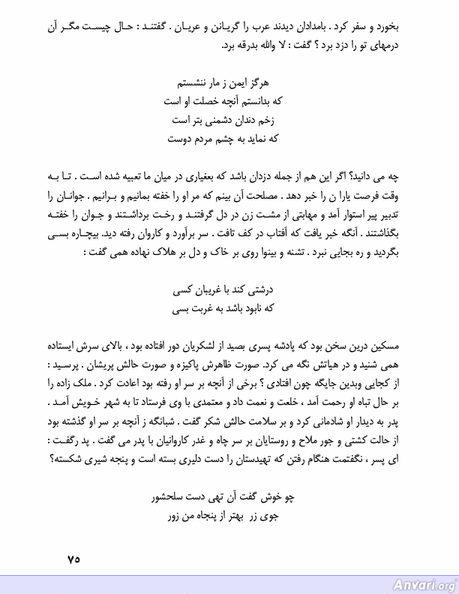 بخورد و سفر کرد . بامدادان دیدند عرب را گریانن و عریان . گفتند : حال چیست مگر آن
درمهای تو را دزد برد ؟ گفت : لا والله بدرقه برد.
هرگز ایمن ز مار ننشستم
که بدانستم آنچه خصلت او است
زخم دندان دشمنی بتر است
که نماید به چشم مردم دوست
چه می دانید؟ اگر این هم از جمله دزدان باشد که بعیاری در میان ما تعبیه شده است . تا به
وقت فرصت یارا ن را خبر دهد . مصلحت آن بینم که مر او را خفته بمانیم و برانیم . جوانان را
تدبیر پیر استوار آمد و مهابتی از مشت زن در دل گرفتند و رخت برداشتند و جوان را خفته
بگذاشتند . آنگه خبر یافت که آفتاب در کف تافت . سر برآورد و کاروان رفته دید. بیچاره بسی
بگردید و ره بجایی نبرد . تشنه و بینوا روی بر خاک و دل بر هلاک نهاده همی گفت :
درشتی کند با غریبان کسی
که نابود باشد به غربت بسی
مسکین درین سخن بود که پادشه پسری بصید از لشکریان دور افتاده بود ، بالای سرش ایستاده
همی شنید و در هیاتش نگه می کرد. صورت ظاهرش پاکیزه و صورت حالش پریشان . پرسید :
از کجایی وبدین جایگه چون افتادی ؟ برخی از آنچه بر سر او رفته بود اعادت کرد . ملک زاده را
بر حال تباه او رحمت آمد ، خلعت و نعمت داد و معتمدی با وی فرستاد تا به شهر خویش آمد .
پدر به دیدار او شادمانی کرد و بر سلامت حالش شکر گفت . شبانگه ز آنچه بر سر او گذشته بود
از حالت کشتی و جور ملاح و روستایان بر سر چاه و غدر کاروانیان با پدر می گفت . پدرگفت :
ای پسر ، نگفتمت هنگام رفتن که تهیدستان را دست دلیری بسته است و پنجه شیری شکسته؟
چو خوش گفت آن تهی دست سلحشور
جوی زر بهتر از پنجاه من زور
۷۵
Anvari.org